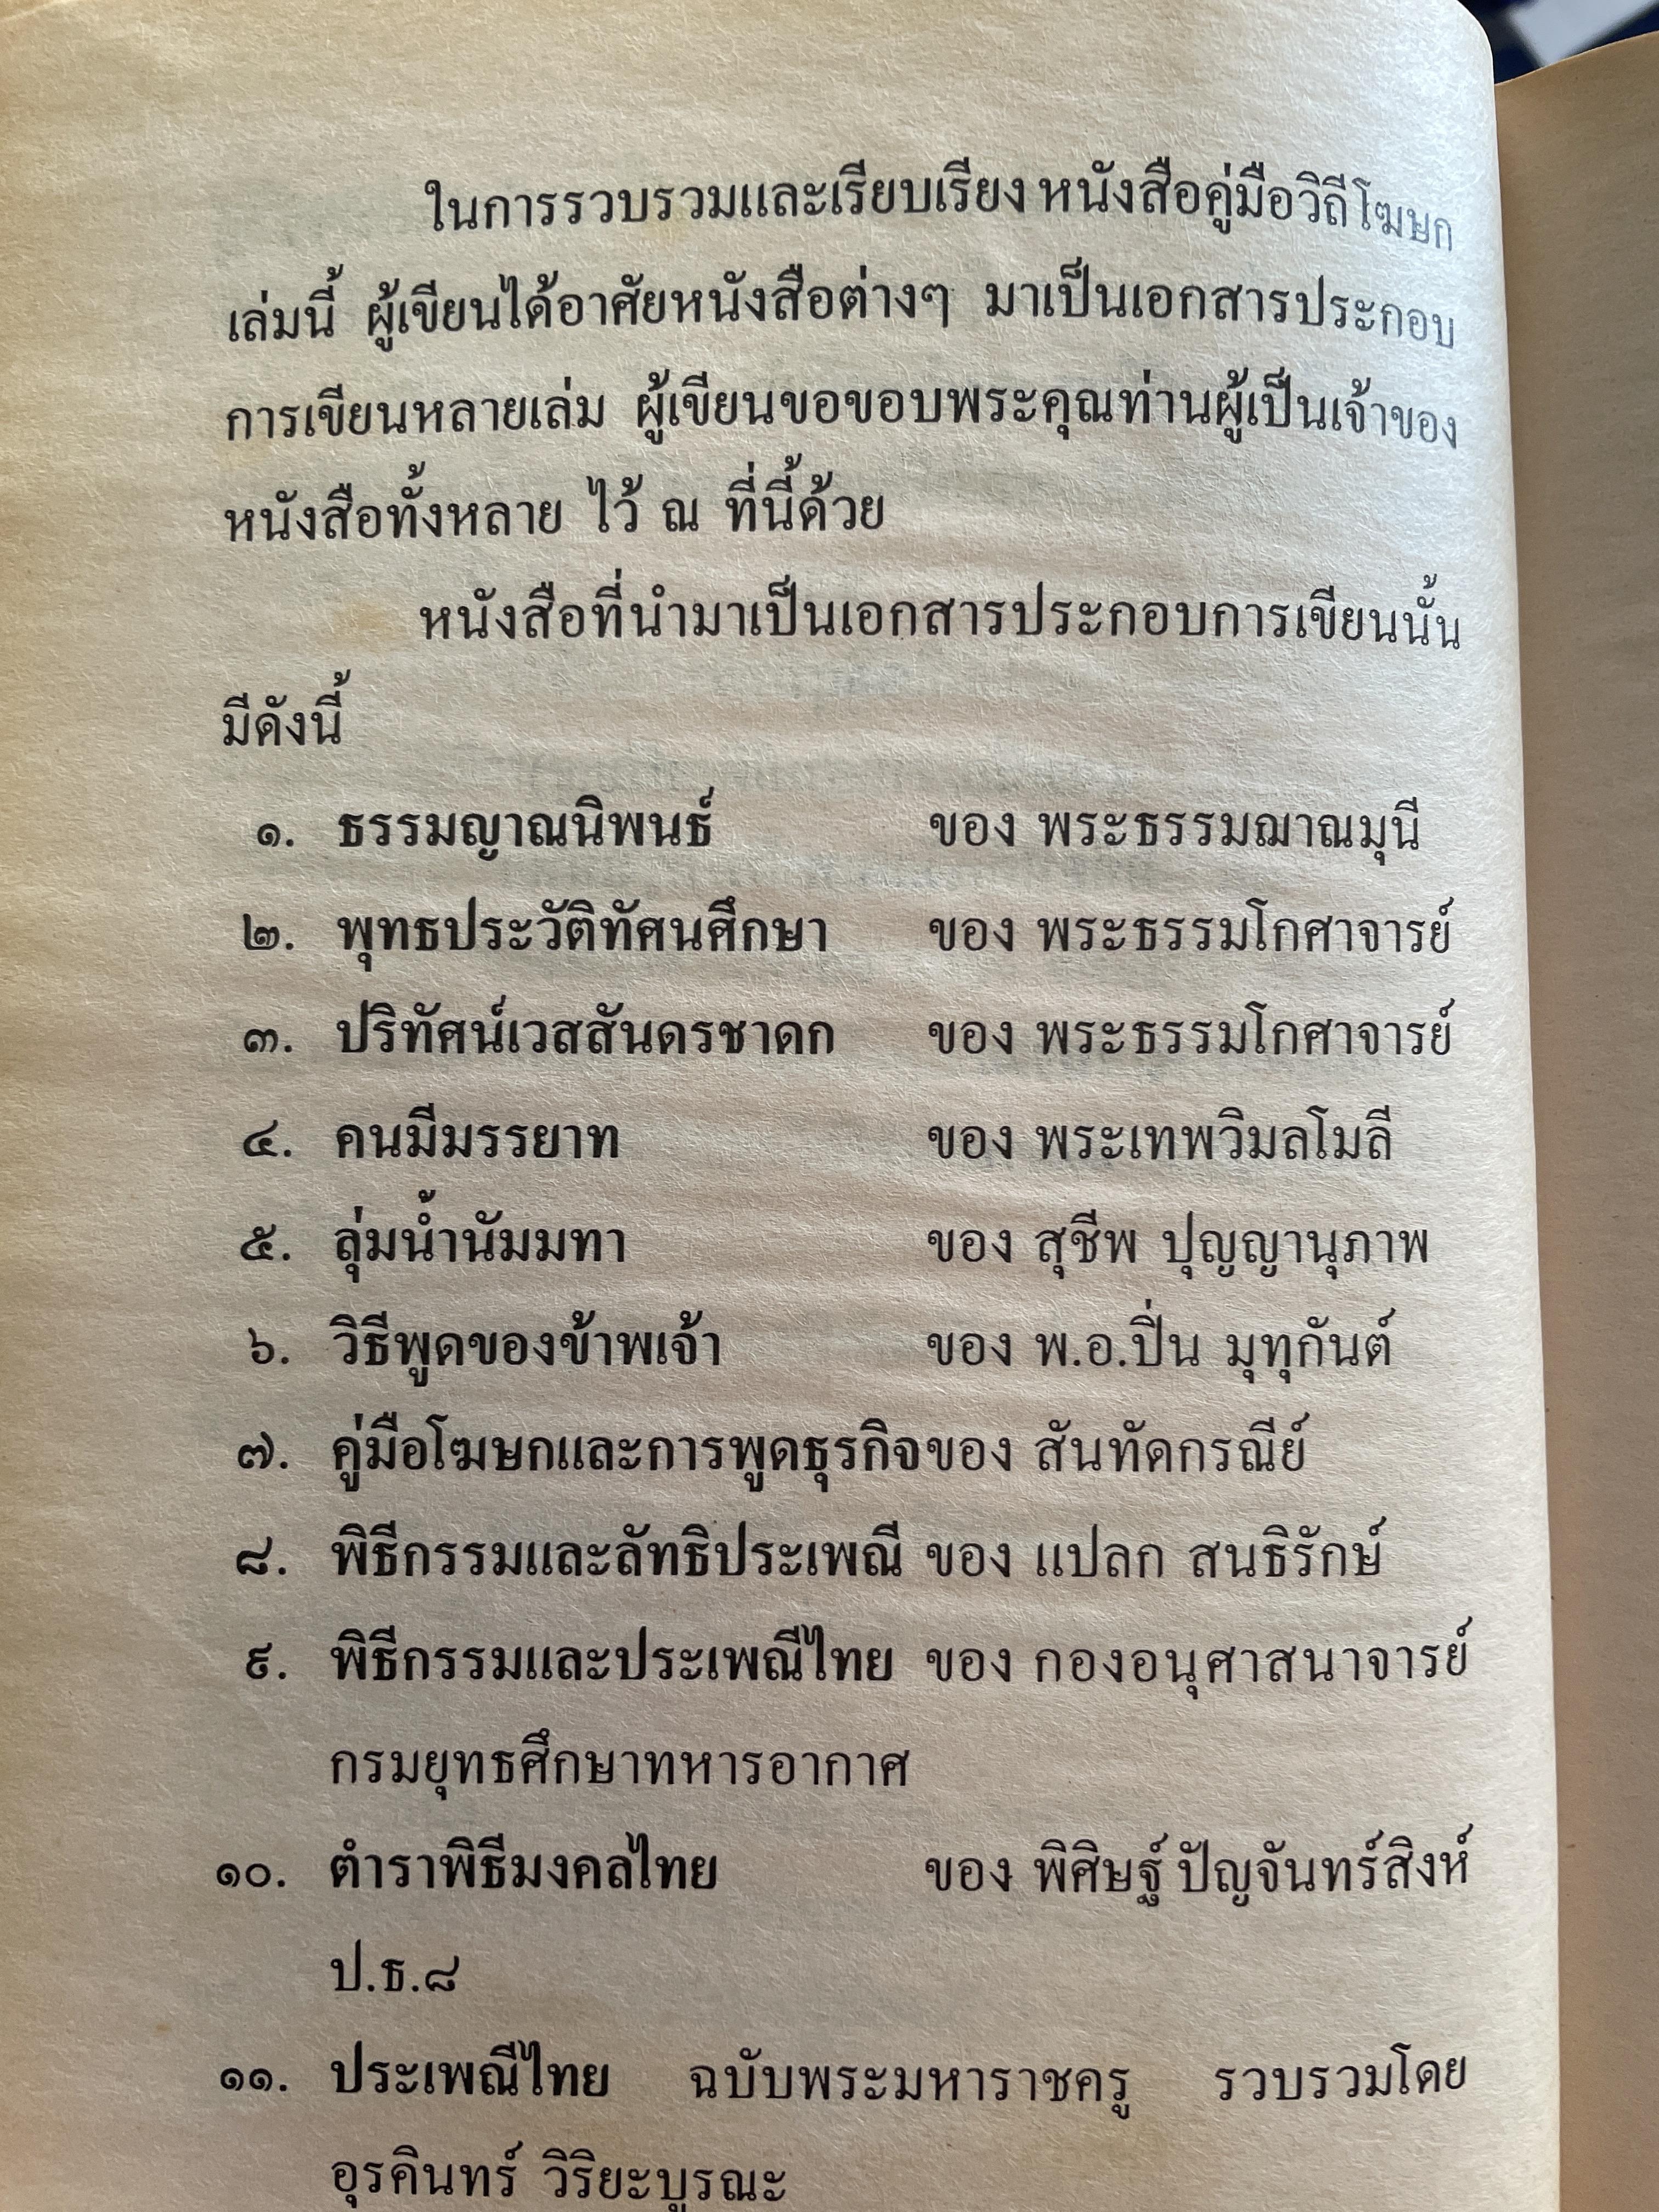 ในการรวบรวมและเรียบเรียง หนังสือคู่มือวิถีโฆษก
เล่มนี้ ผู้เขียนได้อาศัยหนังสือต่างๆ มาเป็นเอกสารประกอบ
การเขียนหลายเล่ม ผู้เขียนขอขอบพระคุณท่านผู้เป็นเจ้าของ
หนังสือทั้งหลาย ไว้ ณ ที่นี้ด้วย
หนังสือที่นำมาเป็นเอกสารประกอบการเขียนนั้น
มีดังนี้
๑. ธรรมญาณนิพนธ์ ของ พระธรรมฌาณมุนี
๒. พุทธประวัติทัศนศึกษา ของ พระธรรมโกศาจารย์
๓. ปริทัศน์เวสสันดรชาดก ของ พระธรรมโกศาจารย์
๔. คนมีมรรยาท ของ พระเทพวิมลโมลี
๕. ลุ่มน้ำนัมมทา ของ สุชีพ ปุญญานุภาพ
๖. วิธีพูดของข้าพเจ้า ของ พ.อ.ปิ่น มุทุกันต์
๗. คู่มือโฆษกและการพูดธุรกิจของ สันทัดกรณีย์
๘. พิธีกรรมและลัทธิประเพณี ของ แปลก สนธิรักษ์
๙. พิธีกรรมและประเพณีไทย ของ กองอนุศาสนาจารย์
กรมยุทธศึกษาทหารอากาศ
๑๐. ตำราพิธีมงคลไทย ของ พิศิษฐ์ ปัญจันทร์สิงห์
ป.ธ.๘
๑๑. ประเพณีไทย ฉบับพระมหาราชครู รวบรวมโดย
อุรคินทร์ วิริยะบูรณะ